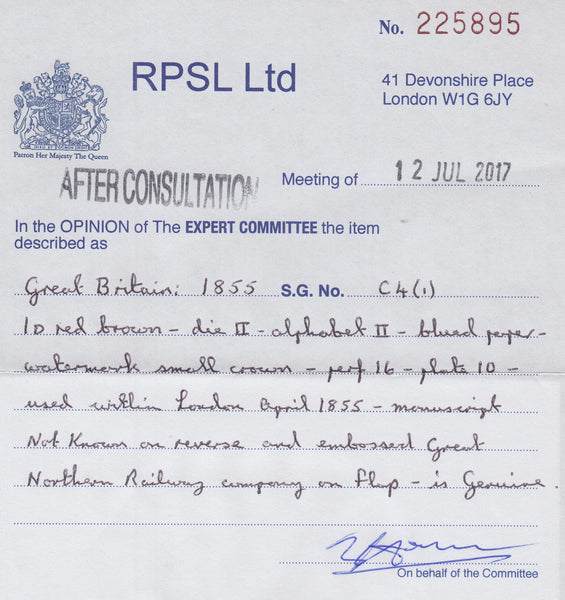 No. 225895
RPSL Ltd
41 Devonshire Place
London W1G 6JY
Patron Her Majesty The Queen
AFTER CONSULTATION
Meeting of 12 JUL 2017
In the OPINION of The EXPERT COMMITTEE the item
described as
Great Britain: 1855 S.G. No. C4(1)
1D red brown - die II - alphabet II - blued paper -
watermark small crown - perf 16 - plate 10 -
used within London April 1855 - manuscript
Not Known on reverse and embossed Great
Northern Railway company on flap - is Genuine.
On behalf of the Committee